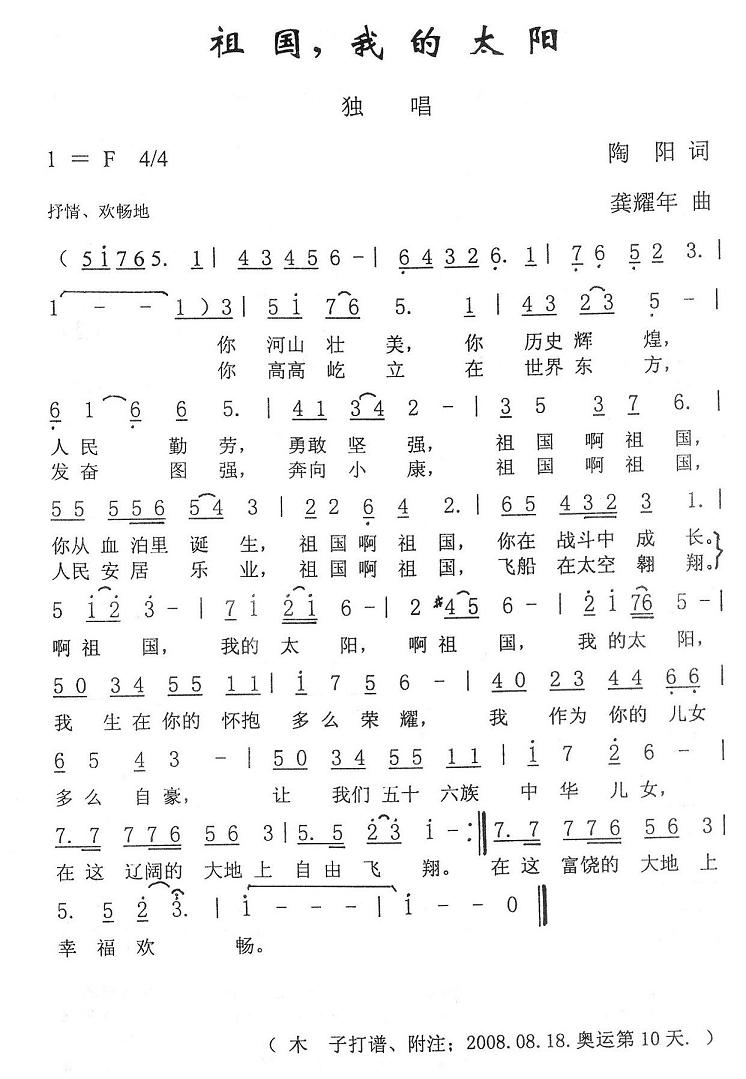 祖国，我的太阳
独 唱
1 = F 4/4 陶 阳 词
抒情、欢畅地 龚耀年 曲
( 5 i 7 6 5. 1 | 4 3 4 5 6 - | 6 4 3 2 6. 1 | 7 6 5 2 3. |
1 - - 1 ) 3 | 5 i 7 6 5. 1 | 4 3 2 3 5 - |
你 河山 壮 美， 你 历史 辉 煌，
你 高高 屹 立 在 世界 东 方，
6 1 6 6 5. | 4 1 3 4 2 - | 3 5 3 7 6. |
人 民 勤 劳， 勇敢 坚 强， 祖 国 啊 祖 国，
发 奋 图 强， 奔向 小 康， 祖 国 啊 祖 国，
5 5 5 5 6 5 4 3 | 2 2 6 4 2. | 6 5 4 3 2 3 1. |
你从 血 泊里 诞 生， 祖 国 啊 祖 国， 你在 战斗中 成 长。
人民 安 居 乐 业， 祖 国 啊 祖 国， 飞船 在太空 翱 翔。
5 i 2 3 - | 7 i 2 i 6 - | 2 #4 5 6 - | 2 i 7 6 5 - |
啊 祖 国， 我的 太 阳， 啊 祖 国， 我 的 太 阳，
5 0 3 4 5 5 1 1 | i 7 5 6 - | 4 0 2 3 4 4 6 6 |
我 生 在 你的 怀抱 多 么 荣 耀， 我 作为 你的 儿女
6 5 4 3 - | 5 0 3 4 5 5 1 1 | i 7 2 6 - |
多 么 自 豪， 让 我们 五十 六族 中 华 儿 女，
7. 7 7 7 6 5 6 3 | 5. 5 2 3 i - :‖ 7. 7 7 7 6 5 6 3 |
在 这 辽阔的 大地 上 自 由 飞 翔。 在 这 富饶的 大地 上
5. 5 2 3. | i - - - | i - - 0 ‖
幸 福 欢 畅。
( 木 子打谱、附注；2008.08.18.奥运第10天. )